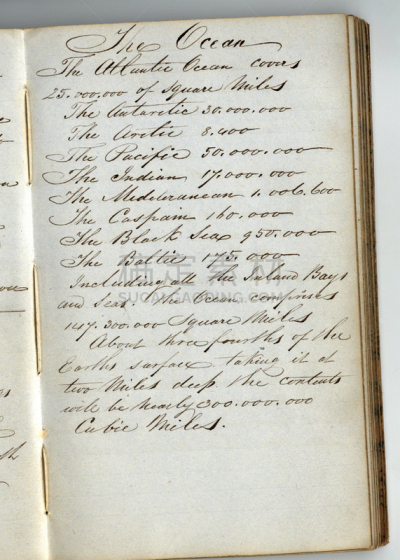 The Ocean
The Atlantic Ocean covers
25.000.000 of Square Miles
The Antarctic 30.000.000
The Arctic 8.400
The Pacific 50.000.000
The Indian 17.000.000
The Mediteranean 1.006.600
The Caspain 160.000
The Black Sea 950.000
The Baltic 175.000
Including all the Inland Bays
and Seas the Ocean comprises
147.300.000 Square Miles
About three fourths of the
Earths surface taking it at
two Miles deep the contents
will be nearly 300.000.000
Cubic Miles.